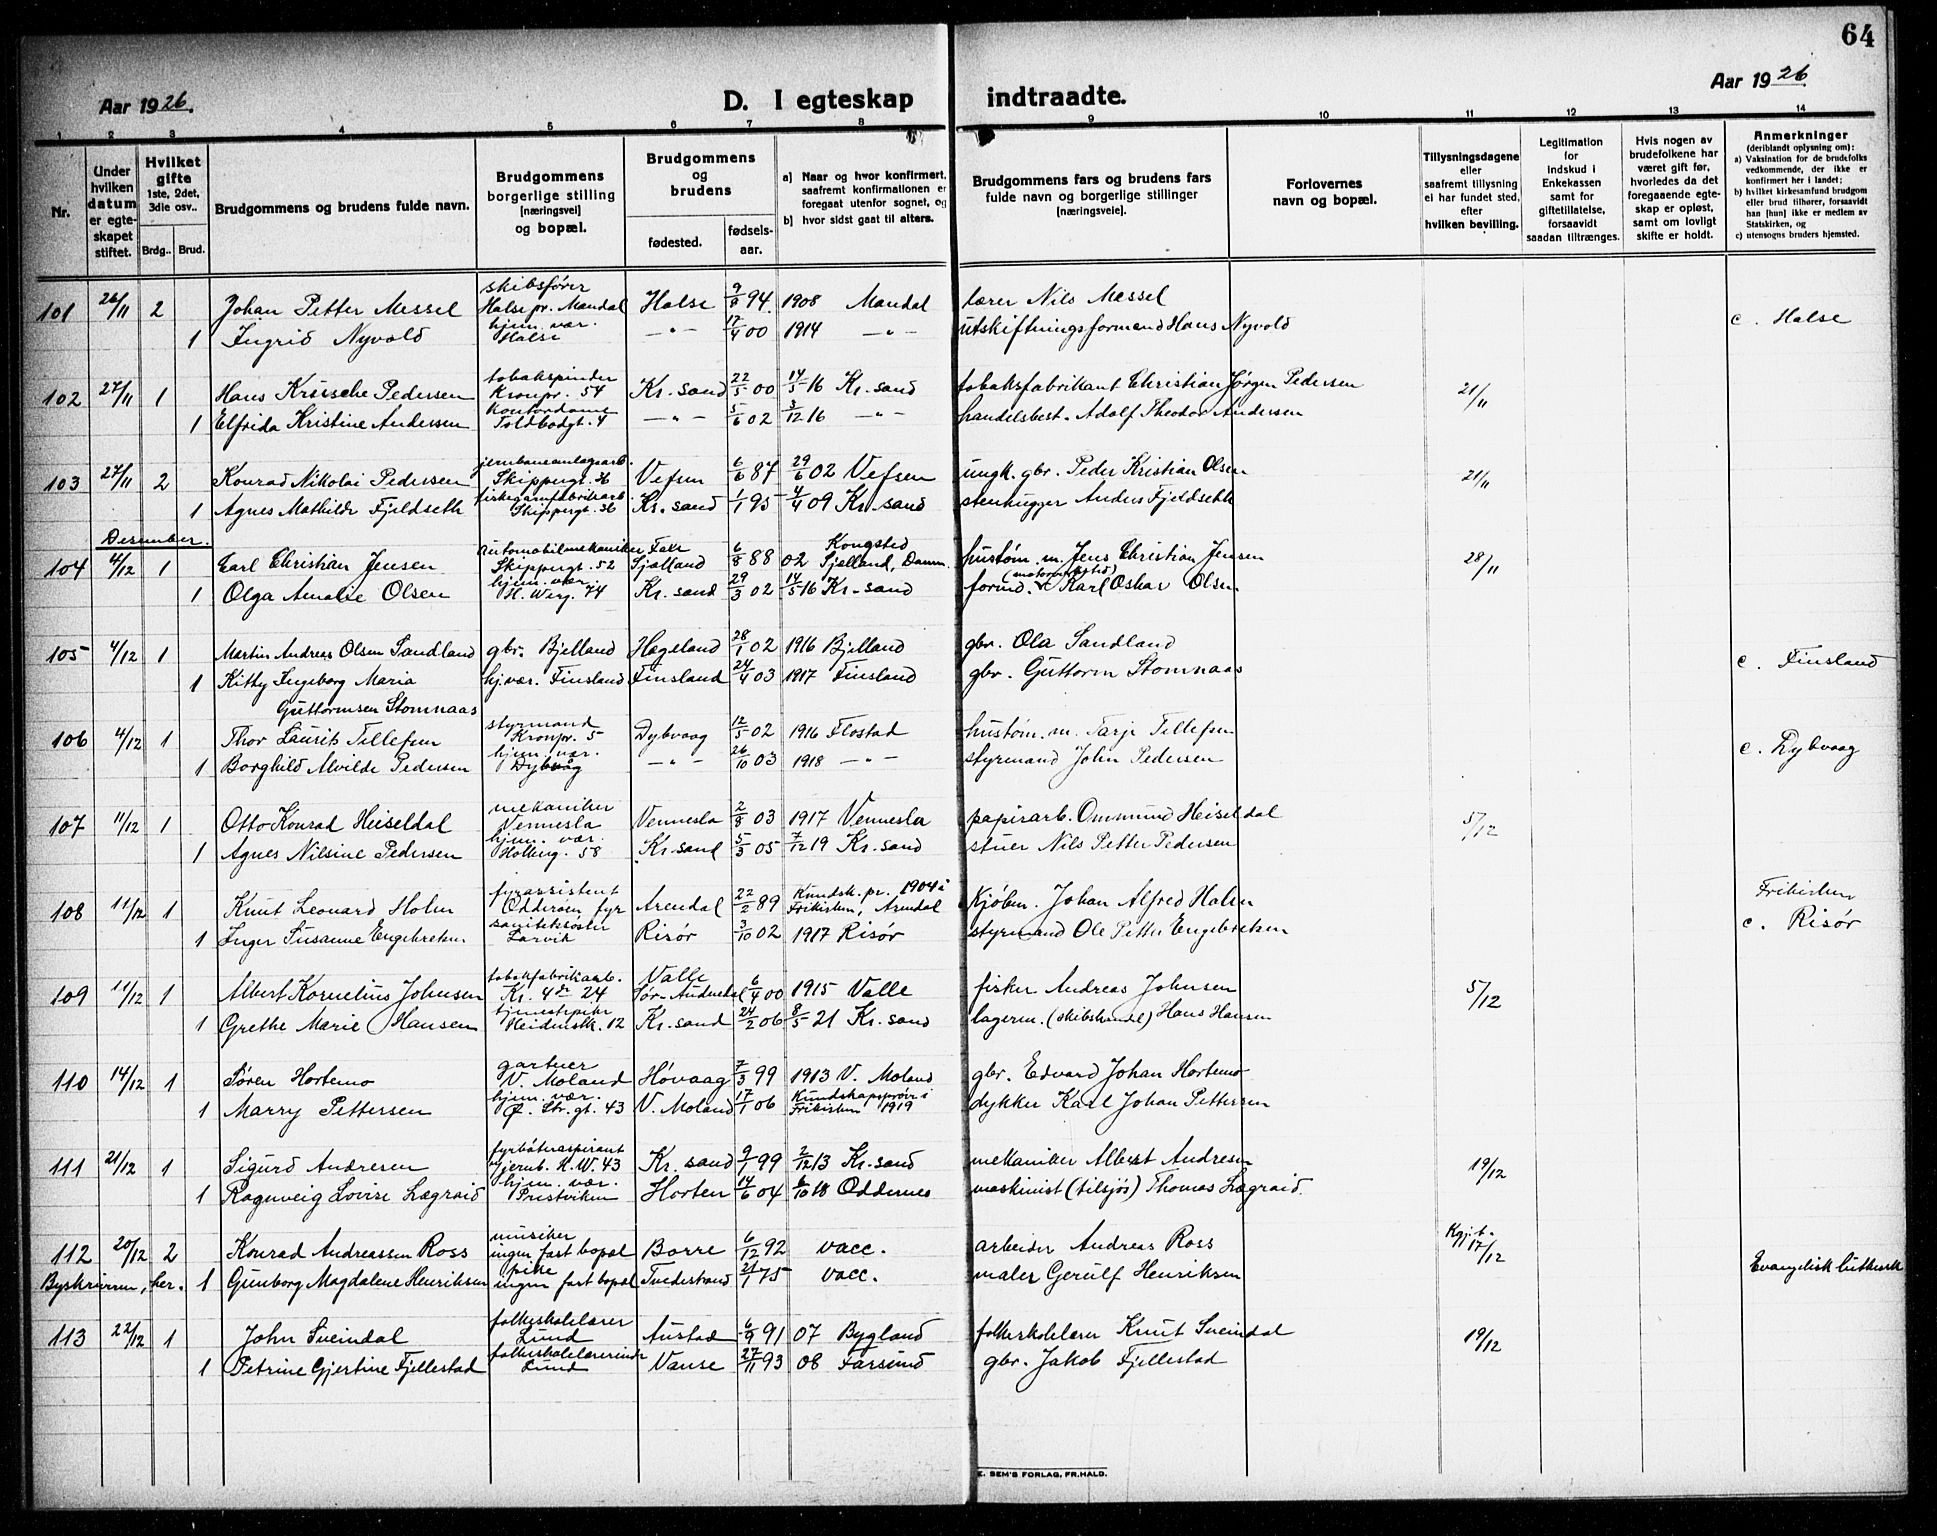 64
Aar 1926. D. I egteskap indtraadte. Aar 1926
1 2 3 4 5 6 7 8 9 10 11 12 13 14
Nr.
Under hvilken datum er egteskapet stiftet.
Hvilket gifte 1ste, 2det, 3die osv..
Brdg.. Brud.
Brudgommens og brudens fulde navn.
Brudgommens borgerlige stilling [næringsvei] og bopæl.
Brudgommens og brudens
fødested. fødselsaar.
a) Naar og hvor konfirmert, saafremt konfirmationen er foregaat utenfor sognet, og
b) hvor sidst gaat til alters.
Brudgommens fars og brudens fars fulde navn og borgerlige stillinger [næringsveie].
Forlovernes navn og bopæl.
Tillysningsdagene eller saafremt tillysning ei har fundet sted, efter hvilken bevilling.
Legitimation for Indskud i Enkekassen samt for giftetillatelse, forsaavidt saadan tiltrænges.
Hvis nogen av brudefolkene har været gift før, hvorledes da det foregaaende egteskap er opløst, samt om lovligt skifte er holdt.
Anmerkninger (deriblandt oplysning om):
a) Vaksination for de brudefolks vedkommende, der ikke er konfirmert her i landet;
b) hvilket kirkesamfund brudgom eller brud tilhører, forsaavidt han [hun] ikke er medlem av Statskirken, og
c) utensogns bruders hjemsted.
101 26/11 2 Johan Petter Messel skibsfører Halse pr. Mandal Halse 9/8 94. 1908 Mandal lærer Nils Messel
1 Ingrid Nyvold hjem. vær. Halse —"— 17/4 00 1914 —"— utskiftningsformand Hans Nyvold c. Halse
102 27/11 1 Hans Krüsche Pedersen tobakspinder Kronpr. 54 Kr.sand 22/5 00 14/5 16 Kr.sand tobaksfabrikant Christian Jørgen Pedersen 21/11
1 Elfrida Kristine Andersen kontordame Toldbodgt. 4 —"— 5/6 02 3/12 16 —"— handelsbest. Adolf Theodor Andersen
103 27/11 2 Konrad Nikolai Pedersen jernbaneanlægsarb. Skippergt. 36 Vefsen 6/6 87 29/6 02 Vefsen ungk. gbr. Peder Kristian Olsen 21/11
1 Agnes Mathilde Fjeldseth fiskegarnfabrikarb. Skippergt. 36 Kr.sand 1/1 95 4/4 09 Kr.sand stenhugger Anders Fjeldseth
Desember.
104 4/12 1 Carl Christian Jensen automobilmekaniker Skippergt. 52 Faxe Sjælland 6/8 88 02 Kongsted Sjelland, Danm. hustøm. m. Jens Christian Jensen 28/11
1 Olga Amalie Olsen hjem. vær. H. Werg. 74 Kr.sand 29/3 02 14/5 16 Kr.sand formd. (motorverksted) Karl Oskar Olsen
105 4/12 1 Martin Andreas Olsen Sandland gbr. Bjelland Hægeland 28/1 02 1916 Bjelland gbr. Ola Sandland
1 Kitty Ingeborg Maria Guttormsen Stomnaas hj.vær. Finsland Finsland 24/4 03 1917 Finsland gbr. Guttorm Stomnaas c. Finsland
106 4/12 1 Thor Laurits Tellefsen styrmand Kronpr. 5 Dybvaag 12/5 02 1916 Flostad hustøm. m. Tarje Tellefsen
1 Borghild Alvilde Pedersen hjem. vær. Dybvåg —"— 26/10 03 1918 —"— styrmand John Pedersen c. Dybvaag
107 11/12 1 Otto Konrad Heiseldal mekaniker Vennesla Vennesla 2/8 03 1917 Vennesla papirarb. Ommund Heiseldal 5/12
1 Agnes Nilsine Pedersen hjem. vær. Holberg. 58 Kr.sand 5/3 05 7/12 19 Kr.sand stuer Nils Petter Pedersen
108 11/12 1 Knut Leonard Holm fyrassistent Odderøen fyr Arendal 22/2 89 Kundsk.pr. 1904 i Frikirken, Arendal Kjøbm. Johan Alfred Holm Frikirken
1 Inger Susanne Engebretsen sanitetssøster Larvik Risør 3/10 02 1917 Risør styrmand Ole Petter Engebretsen c. Risør
109 11/12 1 Albert Kornelius Johnsen tobakfabrikarb. Kr. 4des 24 Valle Sør-Audnedal 6/4 00 1915 Valle fisker Andreas Johnsen 5/12
1 Grethe Marie Hansen tjenestepike Heidmstk. 12 Kr.sand 24/2 06 8/5 21 Kr.sand lagerm. (skibshandel) Hans Hansen
110 14/12 1 Søren Hortemo gartner V. Moland Høvaag 7/3 99 1913 V. Moland gbr. Edvard Johan Hortemo
1 Marry Pettersen hjem. vær. Ø. Str.gt. 43 V. Moland 17/1 06 Kundskapsprøve i Frikirken 1919 dykker Karl Johan Pettersen
111 21/12 1 Sigurd Andresen fyrbøteraspirant v/jernb. H.W. 43 Kr.sand 9/1 99 2/12 13 Kr.sand mekaniker Albert Andresen 19/12
1 Ragnveig Lovise Lægraid hjem. vær. Prestviken Horten 14/6 04 6/10 18 Oddernes maskinist (tilsjøs) Thomas Lægraid.
112 20/12 2 Konrad Andreassen Ross musiker ingen fast bopæl Borre 6/12 92 vacc. arbeider Andreas Ross Kgj.b. 17/12
Byskriveren, her. 1 Gunborg Magdalene Henriksen pike ingen fast bopæl Tvedestrand 21/1 75 vacc. maler Gerulf Henriksen Evangelisk luthersk
113 22/12 1 John Sveindal folkeskolelærer Lund Austad 6/9 91 07 Bygland folkeskolelærer Knut Sveindal 19/12
1 Petrine Gjertine Fjellestad folkeskolelærerinde Lund Vanse 27/11 93 08 Farsund gbr. Jakob Fjellestad
E. SEM'S FORLAG, FR.HALD.